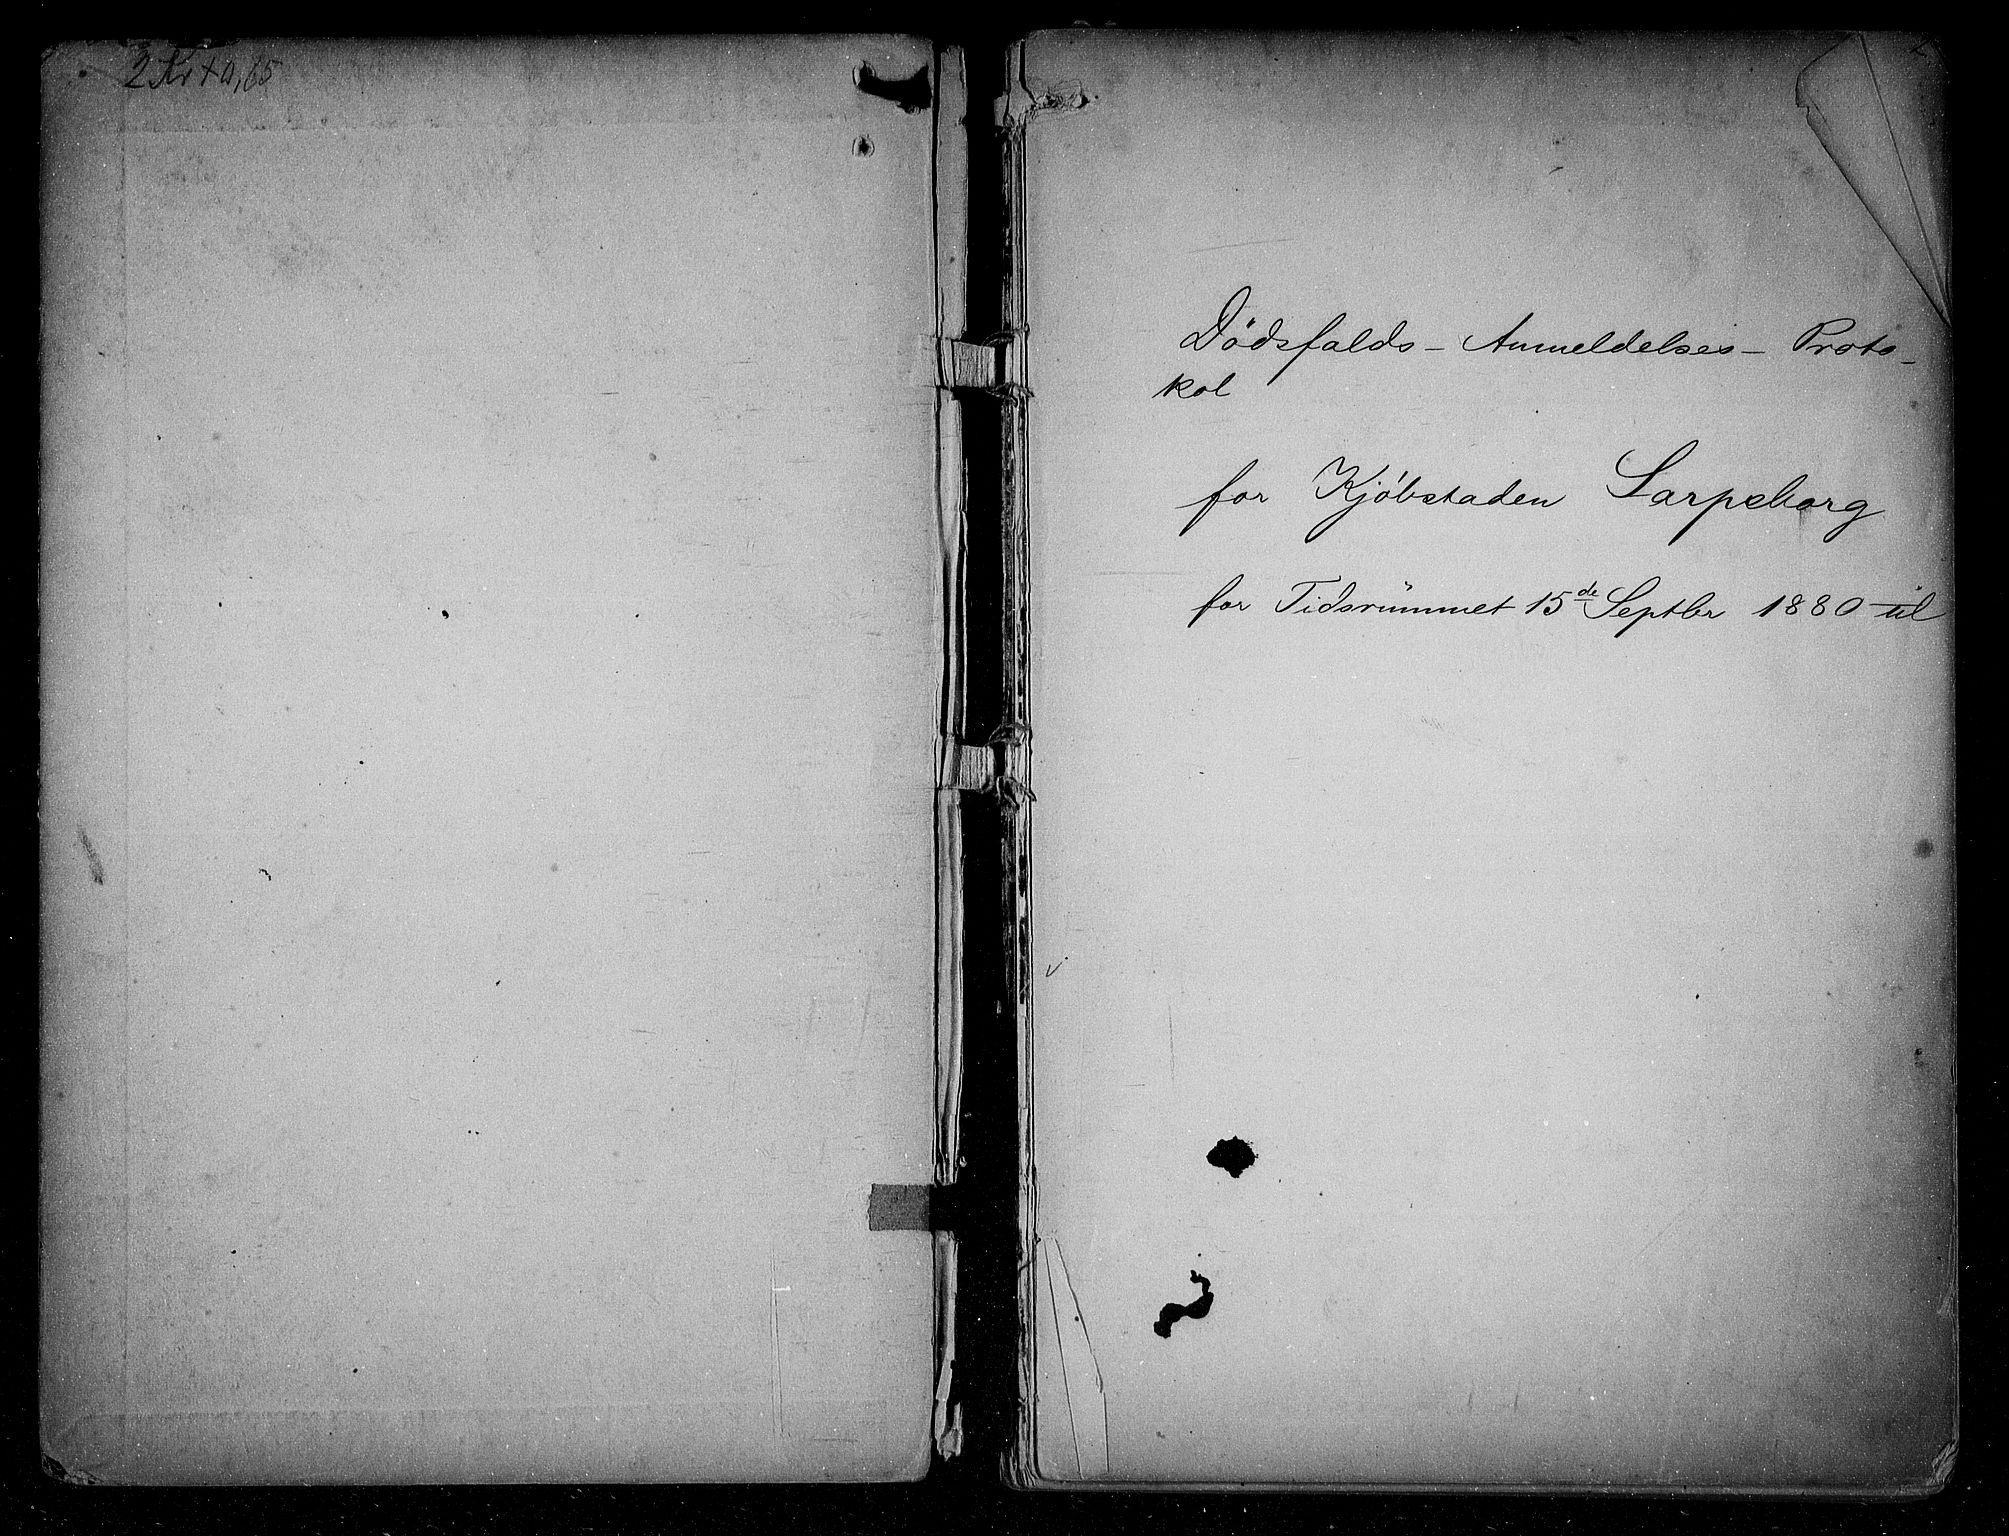 2 Kr + 0,65
Dødsfalds - Anmeldelses - Proto-
kol
for Kjøbstaden Sarpsborg
for Tidsrummet 15de Septbr 1880 til